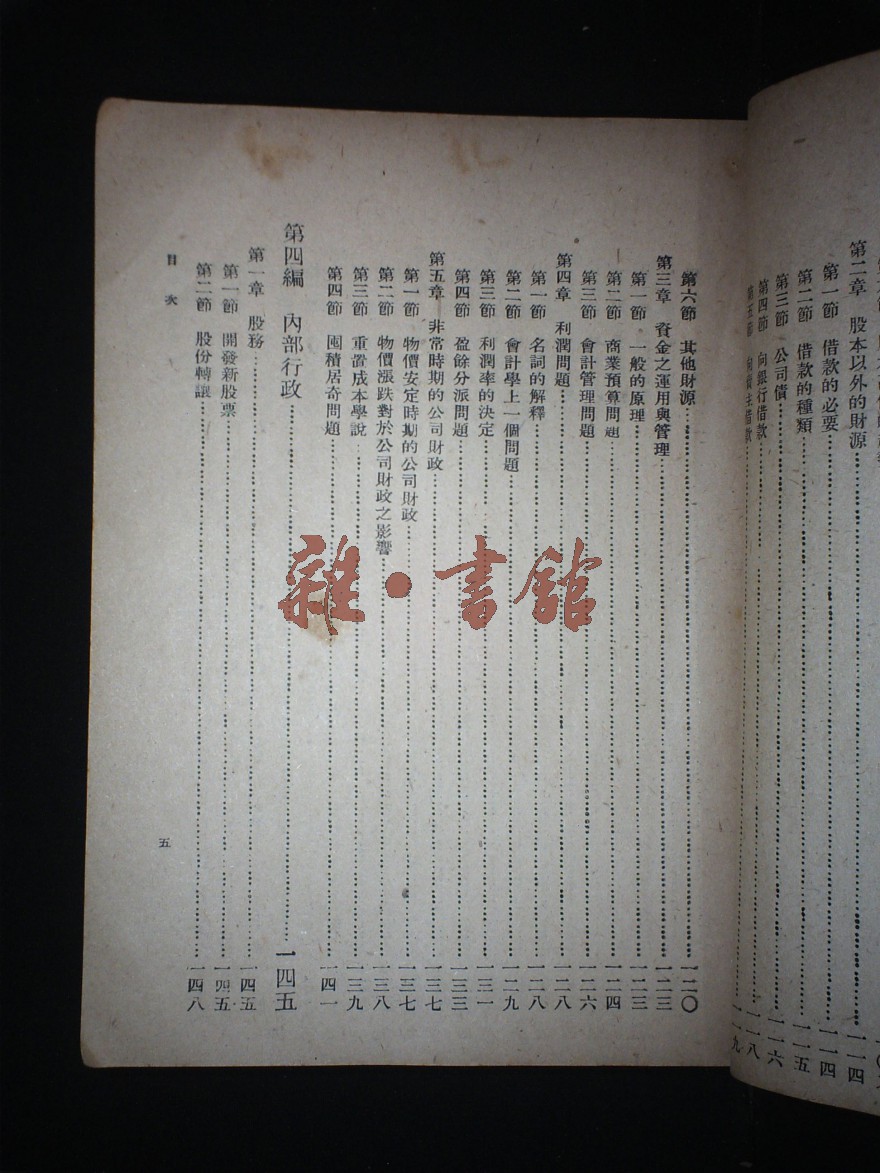 第二章　股本以外的財源……一一四
第一節　借款的必要……一一四
第二節　借款的種類……一一五
第三節　公司債……一一六
第四節　向銀行借款……一一八
第六節　其他財源……一二〇
第三章　資金之運用與管理……一二三
第一節　一般的原理……一二三
第二節　商業預算問題……一二四
第三節　會計管理問題……一二六
第四章　利潤問題……一二八
第一節　名詞的解釋……一二八
第二節　會計學上一個問題……一二九
第三節　利潤率的決定……一三一
第四節　盈餘分派問題……一三三
第五章　非常時期的公司財政……一三七
第一節　物價安定時期的公司財政……一三七
第二節　物價漲跌對於公司財政之影響……一三八
第三節　重置成本學說……一三九
第四節　囤積居奇問題……一四一
第四編　內部行政……一四五
第一章　股務……一四五
第一節　開發新股票……一四五
第二節　股份轉讓……一四八
目次
五
雜·書館